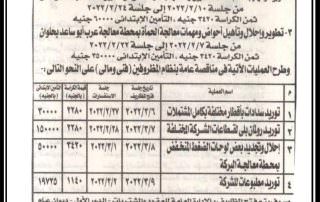 من جلسة ٢٠٢٢/٢/١٠ إلى جلسة ٢٠٢٢/٢/٢٤
ثمن الكراسة ٣٤٢٠ جنيه، التأمين الإبتدائى ٦٠٠٠٠ جنيه
٣- تطوير وإحلال وتأهيل أحواض ومهمات معالجة الحمأة بمحطة معالجة عرب أبو ساعد بحلوان
من جلسة ٢٠٢٢/٢/١٧ إلى جلسة ٢٠٢٢/٢/٢٧
ثمن الكراسة ٣٤٢٠ جنيه، التأمين الإبتدائى ٣٥٠٠٠٠ جنيه
وطرح العمليات الآتية فى مناقصة عامة بنظام المظروفين (فنى ومالى) على النحو التالى:
م العملية جلسة فتح المظاريف جلسة الاستفسارات ثمن الكراسة بالجنيه التأمين الإبتدائى (بالجنيه)
١ توريد سدادات بأقطار مختلفة بكامل المشتملات ٢٠٢٢/٣/٦ ٢٠٢٢/٢/٢٧ ٢٢٨٠ ٣٠٠٠٠
٢ توريد رولمان بلى لقطاعات الشركة المختلفة ٢٠٢٢/٣/٧ ٢٢٨٠ ١٥٠٠٠٠
٣ إحلال وتجديد بعض لوحات الضغط المنخفض بمحطة معالجة البركة ٢٠٢٢/٣/٨ ٣٤٢٠ ٥٠٠٠٠
٤ توريد مطبوعات للشركة ٢٠٢٢/٣/٩ ١١٤٠ ١٩٧٢٥